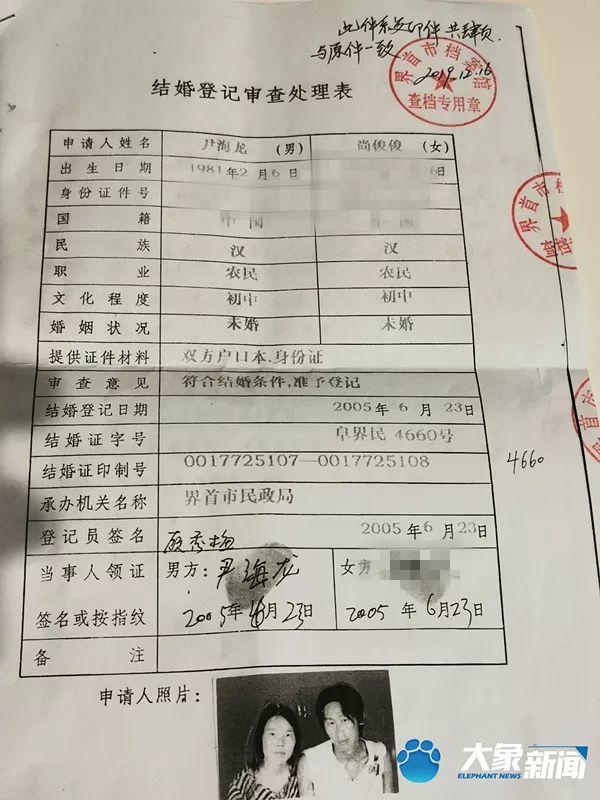 此件系复印件共肆页
与原件一致
2019.12.16
界首市档案馆
查档专用章
结婚登记审查处理表
申请人姓名 尹海龙 (男) 尚俊俊 (女)
出生日期 1981年2月6日 6日
身份证件号
国籍 中国 中国
民族 汉 汉
职业 农民 农民
文化程度 初中 初中
婚姻状况 未婚 未婚
提供证件材料 双方户口本.身份证
审查意见 符合结婚条件,准予登记
结婚登记日期 2005年6月23日
结婚证字号 阜界民4660号
4660
结婚证印制号 0017725107—0017725108
承办机关名称 界首市民政局
登记员签名 顾秀梅 2005年6月23日
当事人领证 男方:尹海龙 女方
签名或按指纹 2005年6月23日 2005年6月23日
备注
申请人照片:
大象新闻
ELEPHANT NEWS